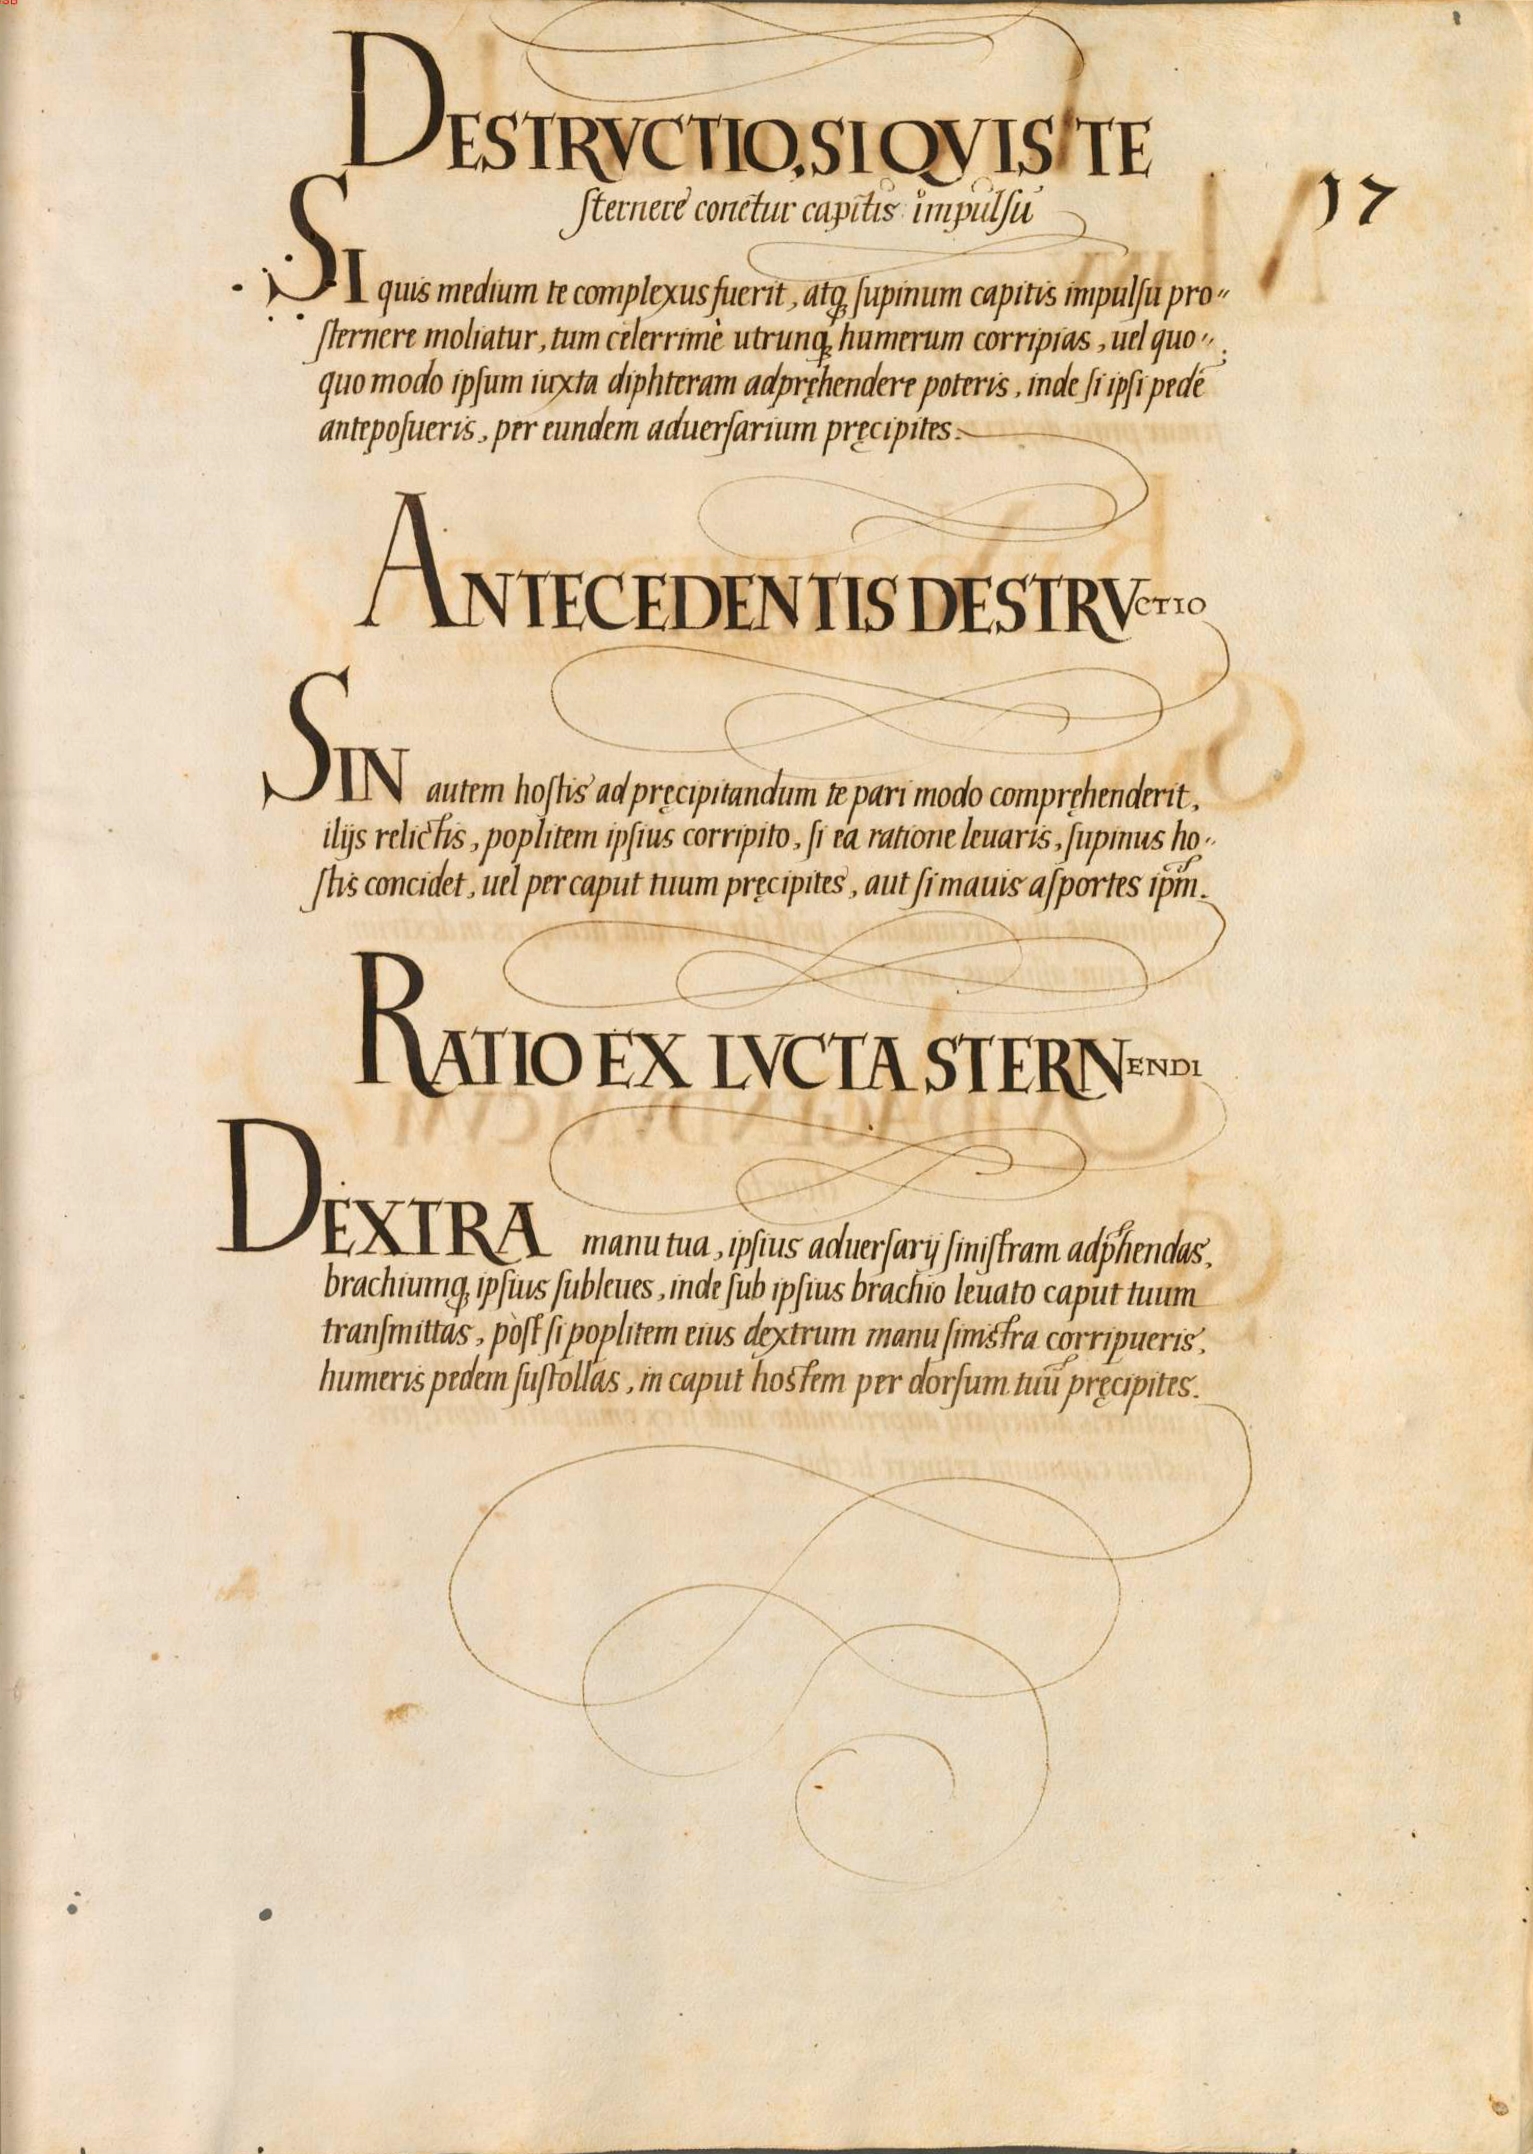 DESTRVCTIO, SI QVIS TE
17
sternere conetur capitis impulsu
SI quis medium te complexus fuerit, atq₃ supinum capitis impulsu pro„
sternere moliatur, tum celerrimè utrunq₃ humerum corripias, uel quo„
quo modo ipsum iuxta diphteram adpręhendere poteris, inde si ipsi pedē
anteposueris, per eundem aduersarium pręcipites.
ANTECEDENTIS DESTRVCTIO
SIN autem hostis ad pręcipitandum te pari modo compręhenderit,
ilijs relictis, poplitem ipsius corripito, si ea ratione leuaris, supinus ho„
stis concidet, uel per caput tuum pręcipites, aut si mauis asportes ip̄m.
RATIO EX LVCTA STERNENDI
DEXTRA manu tua, ipsius aduersarij sinistram adp̄hendas,
brachiumq₃ ipsius subleues, inde sub ipsius brachio leuato caput tuum
transmittas, pòst si poplitem eius dextrum manu sinistra corripueris,
humeris pedem sustollas, in caput hostem per dorsum tuū pręcipites.